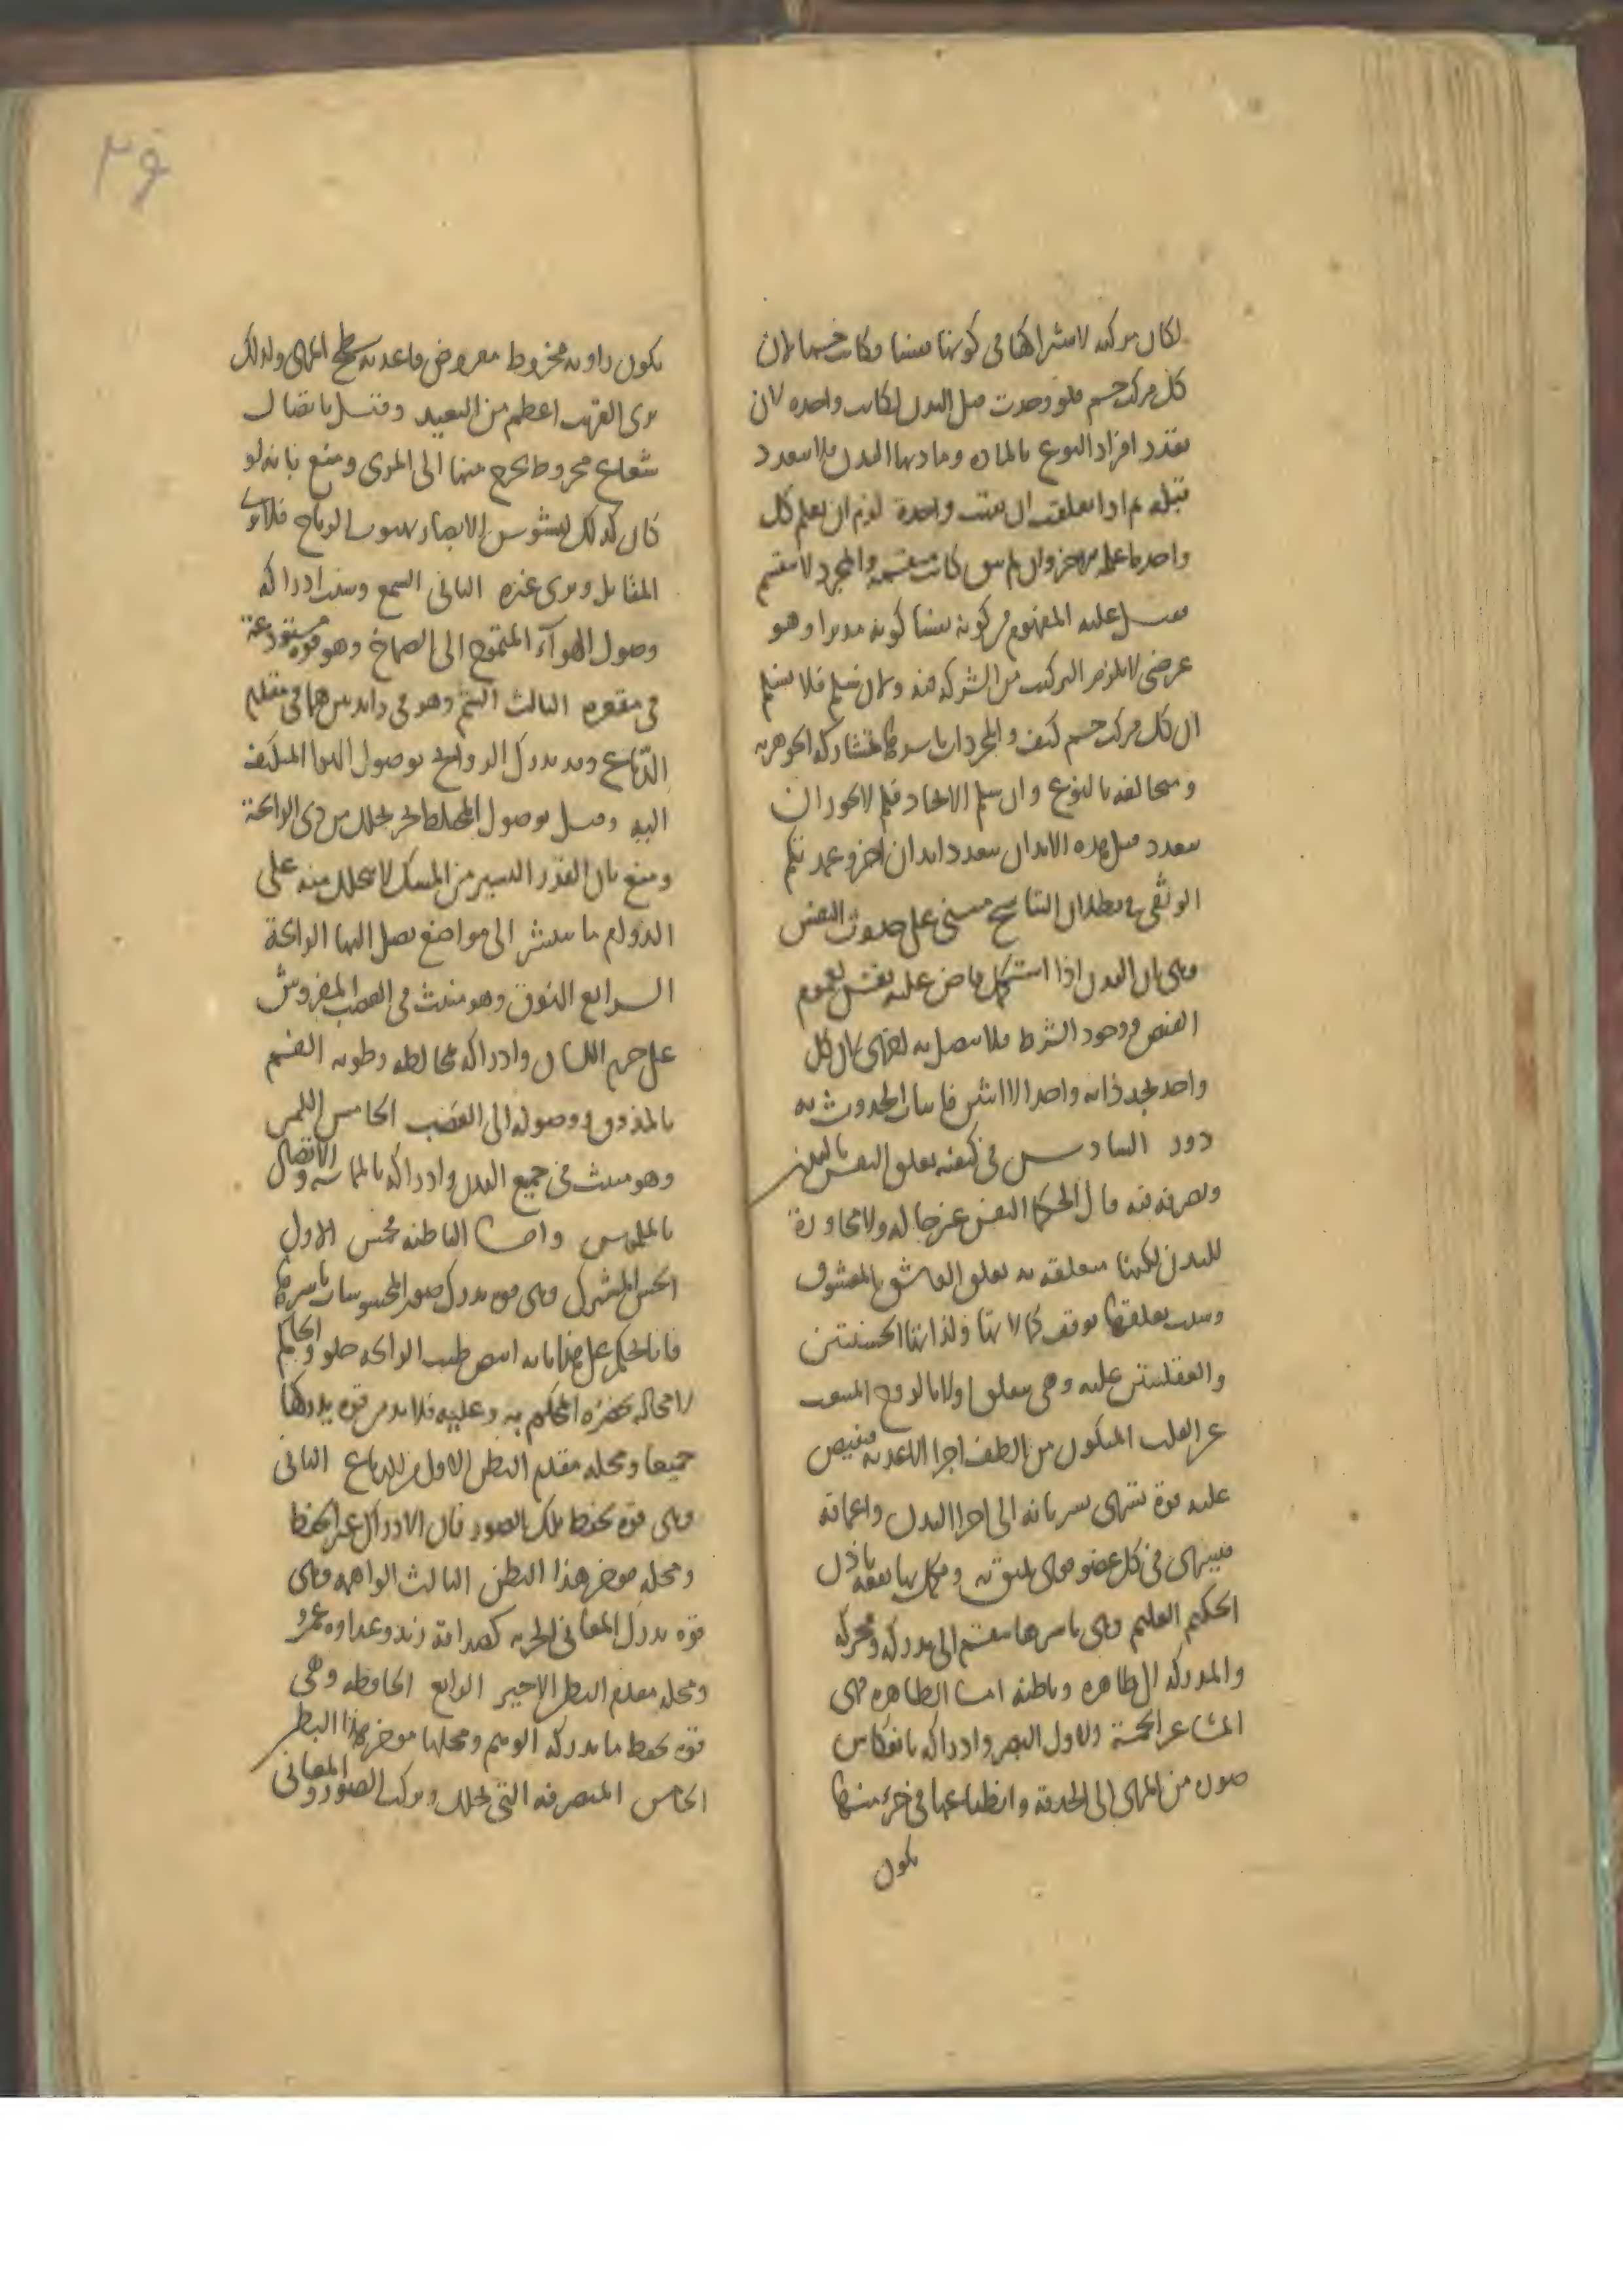 لكان مركبه لاشتراكها فى كونها نفسا وكانت جسما لان
كل مركب جسم فلو وجدت قبل البدن لكانت واحده لان
تعدد افراد النوع بالماده ومادتها البدن فلا تعدد
قبله ثم اذا تعلقت ان بقيت واحدة لزم ان يعلم كل
واحد ما علمه الاخر وان لم تبق كانت منقسمه والمجرد لا ينقسم
قيل عليه المفهوم من كونه نفسا كونه مدبرا وهو
عرضى لا يلزم التركيب من الشركه فيه ولان سلم فلا نسلم
ان كل مركب جسم كيف والمجردات باسرها متشاركه الجوهريه
ومخالفه بالنوع وان سلم الاتحاد فلم لا يجوز ان
تعدد قبل هذه الابدان بتعدد ابدان اخر وعمدتكم
الوثقى فى بطلان التناسخ مبنى على حدوث النفس
وهى ان البدن اذا استكمل فاض عليه نفس لعموم
الفيض ووجود الشرط فلا تتصل به اخرى لان كل
واحد يجد ذاته واحدا لا اثنين فاثبات الحدوث به
دور السادس فى كيفيه تعلق النفس بالبدن
وتصرفه فيه قال الحكما النفس غير حاله ولا مجاورة
للبدن لكنها متعلقه به تعلق العاشق بالمعشوق
وسبب تعلقها توقف كمالاتها ولذاتها الحسيتين
والعقليتين عليه وهى تتعلق اولا بالروح المنبعث
عن القلب المتكون من الطف اجزا الاغديه فيفيض
عليه قوة تسرى بسريانه الى اجزا البدن واعماقه
فيثير فى كل عضو قوى تليق به ويكمل بها نفعه باذن
الحكيم العليم وهى باسرها تنقسم الى مدركه ومحركه
والمدركه الى ظاهره وباطنه اما الظاهره فهى
المشاعر الخمسة الاول البصر وادراكه بانعكاس
صوره من المرئى الى الحدقة وانطباعها فى جزء منها
يكون
يكون زاويه مخروط مفروض قاعدته سطح المرئى ولذلك
يرى القريب اعظم من البعيد وقيل باتصال
شعاع مخروط يخرج منها الى المرئ ومنع بانه لو
كان كذلك لتشوش الابصار بهبوب الرياح فلا يرى
المقابل ويرى غيره الثانى السمع وسبب ادراكه
وصول الهوآء المتموج الى الصماخ وهو قوة مستودعة
فى مقعره الثالث الشم وهو فى زائدتين هما فى مقدم
الدماغ وبه يدرك الروائح بوصول الهوا المتكيف
اليه وقيل بوصول المختلط بجزء يتحلل من ذى الرائحة
ومنع بان القدر اليسير من المسك لا يتحلل منه على
الدوام ما ينتشر الى مواضع يصل اليها الرائحة
الرابع الذوق وهو منبث فى العصب المفروش
على جرم اللسان وادراكه بمخالطه رطوبه الفم
بالمذوق ووصوله الى العصب الخامس اللمس
وهو منبث فى جميع البدن وادراكه بالمماسه والاتصال
بالملموس واما الباطنه فخمس الاول
الحس المشترك وهى قوه تدرك صور المحسوسات باسرها
فانا نحكم على هذا بانه ابيض طيب الرائحه حلو والحاكم
لا محاله يحضره المحكوم به وعليه فلا بد من قوه يدركها
جميعا ومحله مقدم البطن الاول من الدماغ الثانى
وهى قوة تحفظ تلك الصور فان الادراك غير الحفظ
ومحله موخر هذا البطن الثالث الواهمه وهى
قوه تدرك المعانى الجزئيه كصداقة زيد وعداوه عمرو
ومحله مقدم البطن الاخير الرابع الحافظه وهى
قوه تحفظ ما يدركه الوهم ومحلها موخر هذا البطن
الخامس المتصرفه التى تحلل وتركب الصور والمعانى